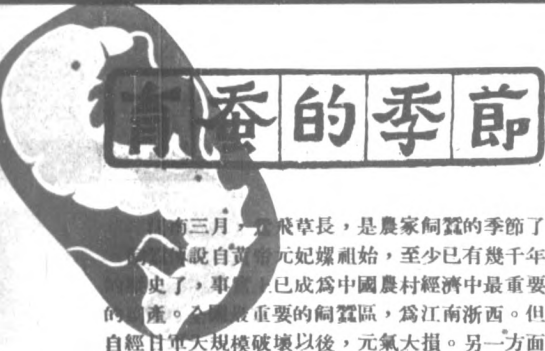 育蚕的季節
南三月，鶯飛草長，是農家飼蠶的季節了
傳說自黃帝元妃嫘祖始，至少已有幾千年
的歷史了，事實上已成爲中國農村經濟中最重要
的副產。全國最重要的飼蠶區，爲江南浙西。但
自經日軍大規模破壞以後，元氣大損。另一方面